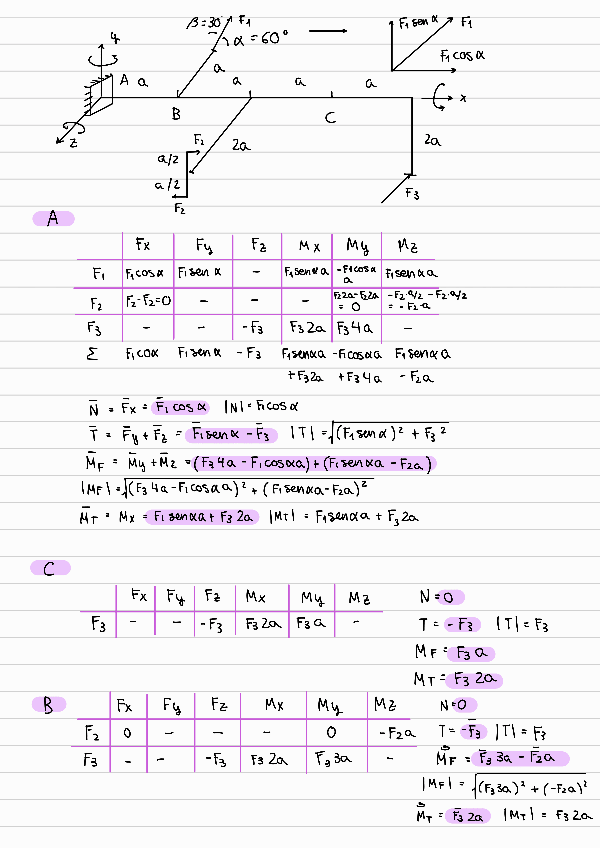 β=30° F₁ F₁ sen α F₁
α = 60°
F₁ cos α
y
A a a a a a
x
B C
z
F₂ 2a 2a
a/2
a/2
F₂ F₃
A
Fx Fy Fz Mx My Mz
F₁ F₁cosα F₁sen α - F₁senα a -F₁cosα a F₁senα a
F₂ F₂-F₂=0 - - - F₂2a-F₂2a = 0 -F₂·a/2 -F₂·a/2 = -F₂·a
F₃ - - -F₃ F₃2a F₃4a -
Σ F₁coα F₁senα -F₃ F₁senαa -F₁cosαa F₁senαa
+F₃2a +F₃4a -F₂a
N̄ = F̄x = F̄₁ cos α |N| = F₁cosα
T̄ = F̄y + F̄z = F̄₁senα - F̄₃ |T| = √(F₁senα)² + F₃²
M̄F = M̄y + M̄z = (F₃4a - F₁cosαa) + (F₁senαa - F₂a)
|MF| = √(F₃4a - F₁cosαa)² + (F₁senαa - F₂a)²
M̄T = Mx = F₁senαa + F₃2a |MT| = F₁senαa + F₃2a
C
Fx Fy Fz Mx My Mz N = 0
F₃ - - -F₃ F₃2a F₃a - T = -F₃ |T| = F₃
MF = F₃a
MT = F₃2a
B Fx Fy Fz Mx My Mz N=0
F₂ 0 - - - 0 -F₂a T = -F̄₃ |T| = F₃
F₃ - - -F₃ F₃2a F₃3a - M̄F = F̄₃3a - F̄₂a
|MF| = √(F₃3a)² + (-F₂a)²
M̄T = F̄₃2a |MT| = F₃2a